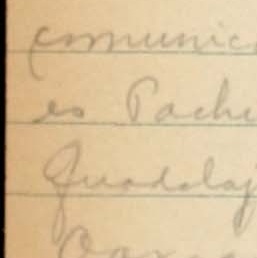 comunic
es Pachu
Guadalaj
Oaxa